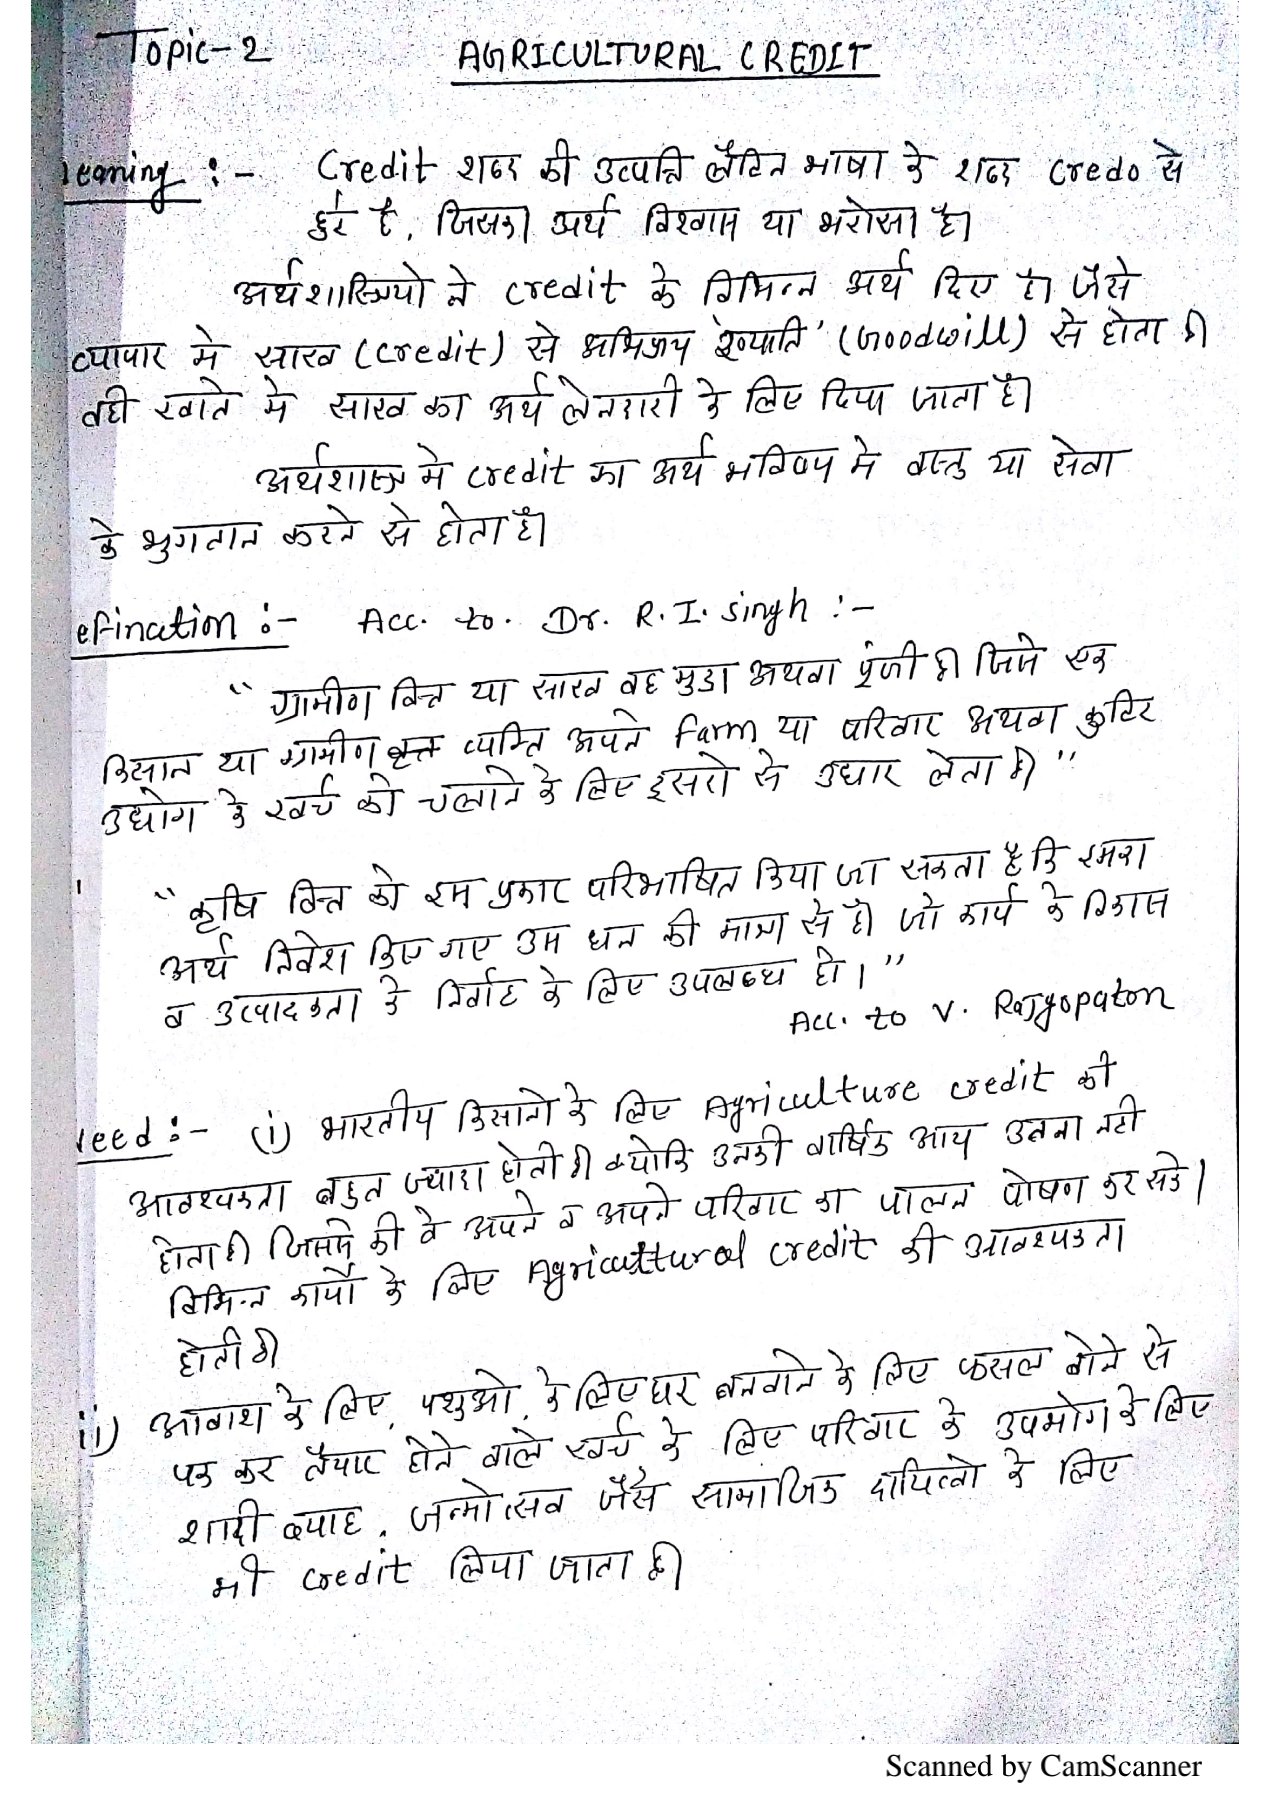 Topic-2
AGRICULTURAL CREDIT
eaning :- Credit शब्द की उत्पत्ति लैटिन भाषा के शब्द Credo से
हुई है, जिसका अर्थ विश्वास या भरोसा है।
अर्थशास्त्रियो ने credit के विभिन्न अर्थ दिए है। जैसे
व्यापार मे साख (credit) से अभिप्राय 'ख्याति' (Goodwill) से होता है।
वही खाते मे साख का अर्थ लेनदारी के लिए दिया जाता है।
अर्थशास्त्र मे credit का अर्थ भविष्य मे वस्तु या सेवा
के भुगतान करने से होता है।
efination :- Acc. to. Dr. R. I. Singh :-
" ग्रामीण वित्त या साख वह मुद्रा अथवा पूंजी है। जिसे एक
किसान या ग्रामीण व्यक्ति अपने Farm या परिवार अथवा कुटिर
उद्योग के खर्च को चलाने के लिए दूसरो से उधार लेता है। "
" कृषि वित्त को इस प्रकार परिभाषित किया जा सकता है कि इसका
अर्थ निवेश किए गए उस धन की मात्रा से है। जो कार्य के विकास
व उत्पादकता के निर्वाह के लिए उपलब्ध हो। "
Acc. to V. Rajgopaton
eed :- (i) भारतीय किसानो के लिए Agriculture credit की
आवश्यकता बहुत ज्यादा होती है। क्योकि उनकी वार्षिक आय उतना नही
होता है। जिससे की वे अपने व अपने परिवार का पालन पोषण कर सके।
विभिन्न कार्यो के लिए Agricultural credit की आवश्यकता
होती है।
ii) आवाश के लिए, पशुओ के लिए घर बनवाने के लिए फसल बोने से
पक कर तैयार होने वाले खर्च के लिए परिवार के उपभोग के लिए
शादी ब्याह, जन्मोत्सव जैसे सामाजिक दायित्वो के लिए
भी credit लिया जाता है।
Scanned by CamScanner